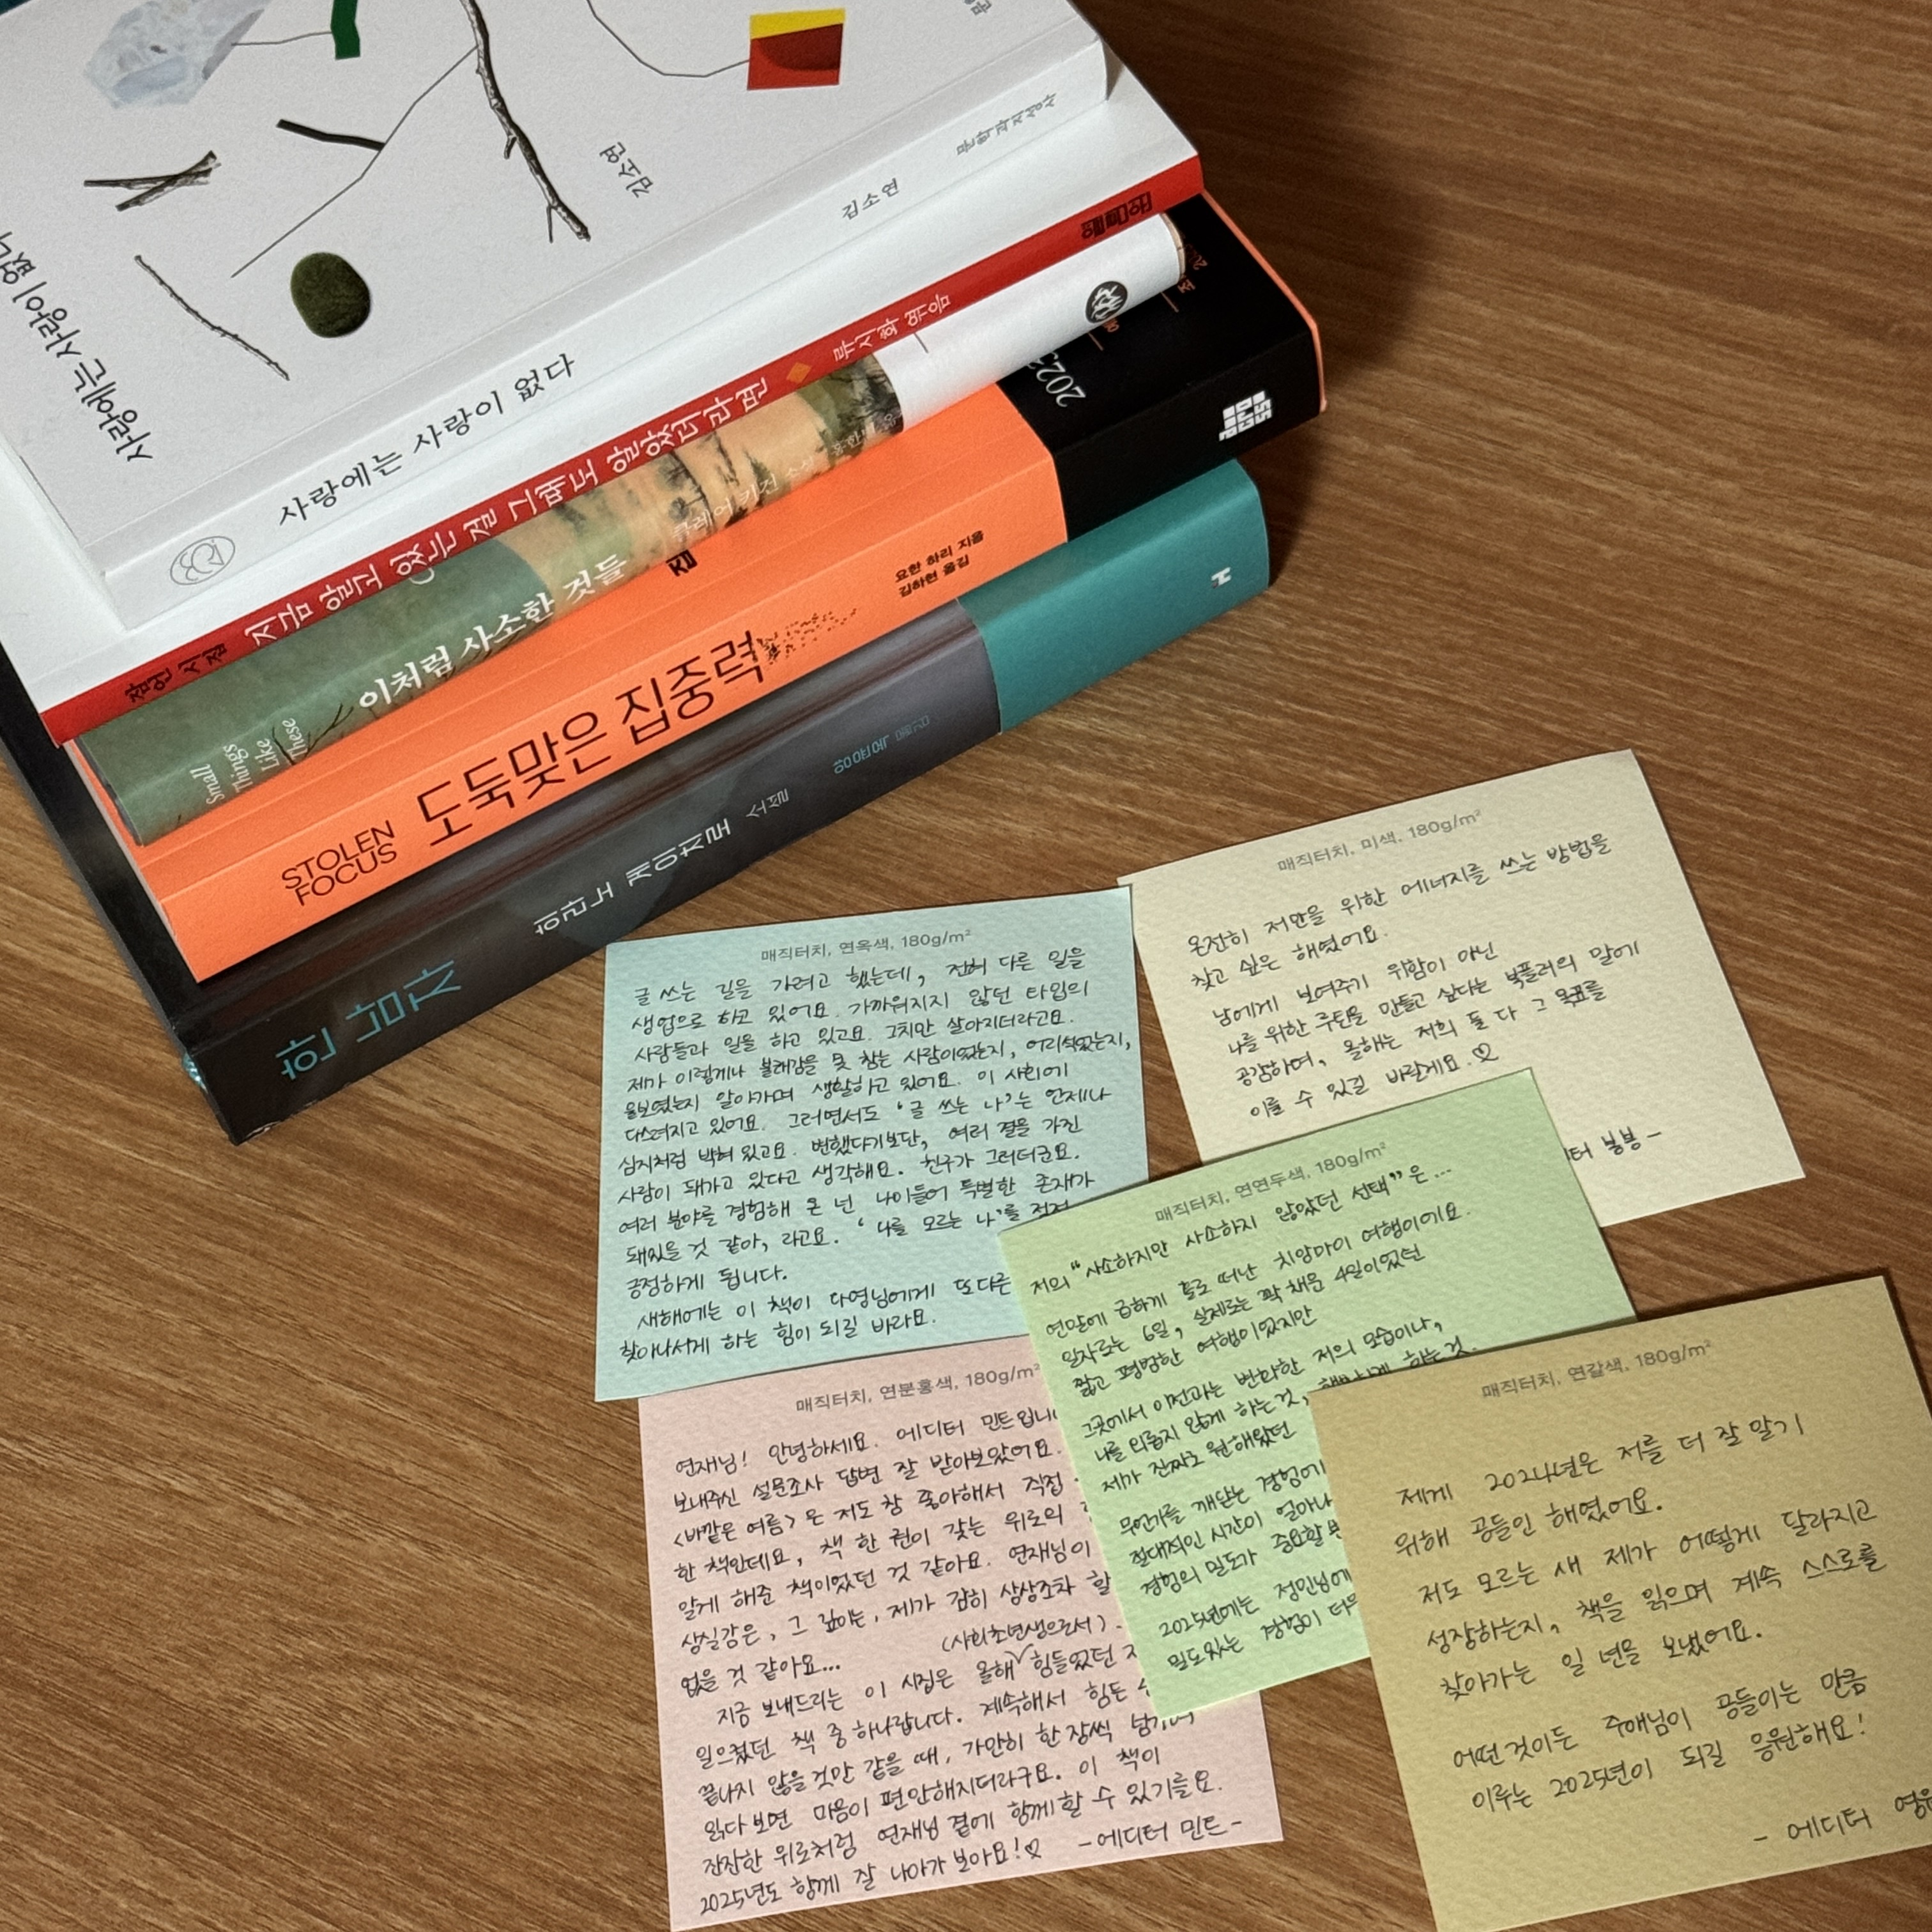 사랑에는 사랑이 없다
김소연
사랑에는 사랑이 없다
김소연
문학과지성사
잠언 시집
지금 알고 있는 걸 그때도 알았더라면
류시화 엮음
열림원
Small
Things
Like
These
이처럼 사소한 것들
클레어 키건 소설
2023
STOLEN
FOCUS
도둑맞은 집중력
요한 하리 지음
김하현 옮김
소설
매직터치, 연옥색, 180g/m²
글 쓰는 길을 가려고 했는데, 전혀 다른 일을
생업으로 하고 있어요. 가까워지지 않던 타입의
사람들과 일을 하고 있고요. 그치만 살아지더라고요.
제가 이렇게나 불쾌감을 못 참는 사람이었는지, 어리석었는지,
울보였는지 알아가며 생활하고 있어요. 이 사회에
다스려지고 있어요. 그러면서도 ‘글 쓰는 나’는 언제나
심지처럼 박혀 있고요. 변했다기보단, 여러 결을 가진
사람이 돼가고 있다고 생각해요. 친구가 그러더군요.
여러 분야를 경험해 온 넌 나이들어 특별한 존재가
돼있을 것 같아, 라고요. ‘나를 모르는 나’를 점점
긍정하게 됩니다.
새해에는 이 책이 다영님에게 또다른
찾아나서게 하는 힘이 되길 바라요.
매직터치, 미색, 180g/m²
온전히 저만을 위한 에너지를 쓰는 방법을
찾고 싶은 해였어요.
남에게 보여주기 위함이 아닌
나를 위한 루틴을 만들고 싶다는 북플러의 말에
공감하며, 올해는 저희 둘 다 그 목표를
이룰 수 있길 바랄게요.♡
터 붕붕-
매직터치, 연연두색, 180g/m²
저의 “사소하지만 사소하지 않았던 선택”은...
연말에 급하게 홀로 떠난 치앙마이 여행이에요.
일자로는 6일, 실제로는 꽉 채운 4일이었던
짧고 평범한 여행이었지만
그곳에서 이전과는 변화한 저의 모습이나,
나를 외롭지 않게 하는 것, 하는 것.
제가 진짜로 원해왔던
무언가를 깨닫는 경험에
절대적인 시간이 얼마나
경험의 밀도가 중요할 뿐
2025년에는 정민님에
밀도있는 경험이 더욱
매직터치, 연분홍색, 180g/m²
연재님! 안녕하세요. 에디터 민트입니
보내주신 설문조사 답변 잘 받아보았어요.
<바깥은 여름>은 저도 참 좋아해서 직접
한 책인데요, 책 한 권이 갖는 위로의
알게 해준 책이었던 것 같아요. 연재님이
상실감은, 그 깊이는, 제가 감히 상상조차 할
없을 것 같아요... (사회초년생으로서).
지금 보내드리는 이 시집은 올해 힘들었던
일으켰던 책 중 하나랍니다. 계속해서 힘든
끝나지 않을 것만 같을 때, 가만히 한 장씩 넘기며
읽다 보면 마음이 편안해지더라구요. 이 책이
잔잔한 위로처럼 연재님 곁에 함께할 수 있기를요.
2025년도 함께 잘 나아가 보아요!♡ -에디터 민트-
매직터치, 연갈색, 180g/m²
제게 2024년은 저를 더 잘 알기
위해 공들인 해였어요.
저도 모르는 새 제가 어떻게 달라지고
성장하는지, 책을 읽으며 계속 스스로를
찾아가는 일 년을 보냈어요.
어떤 것이든 주애님이 공들이는 만큼
이루는 2025년이 되길 응원해요!
- 에디터 영원